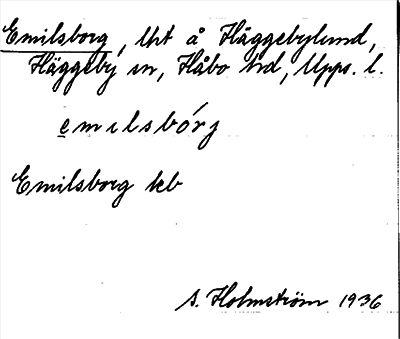 Emilsborg, Uht å Häggebylund,
Häggeby sn, Håbo hd, Upps. l.
emilsbórj
Emilsborg keb
S. Holmström 1936